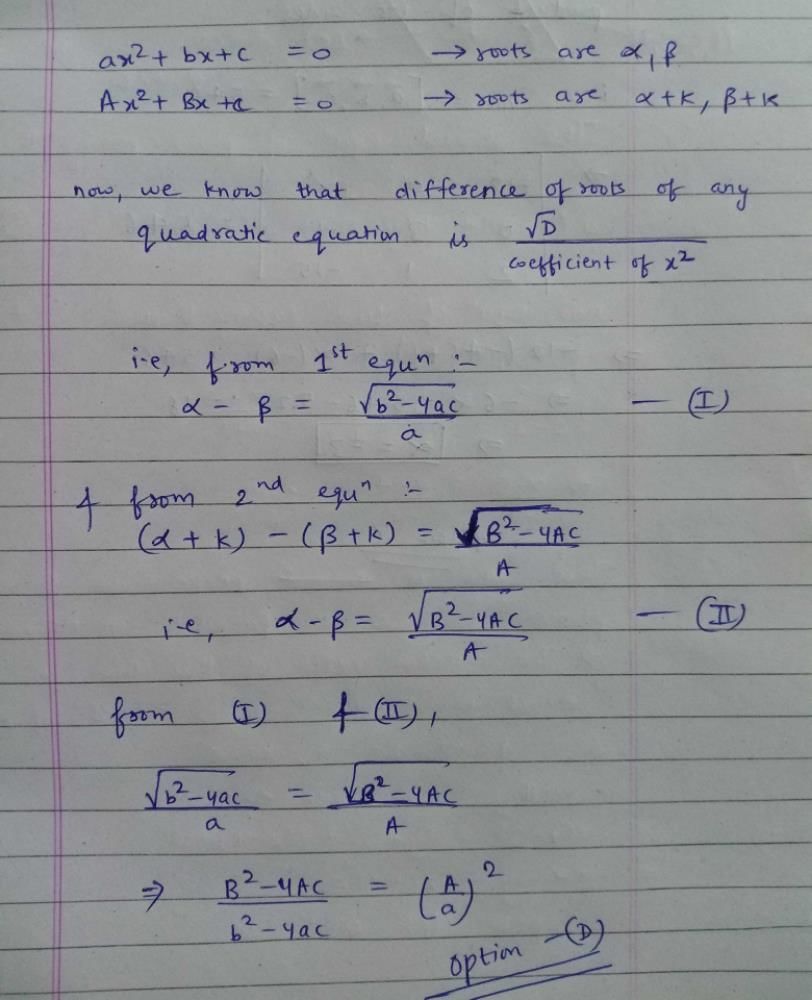 ax² + bx + c = 0 → roots are α, β
Ax² + Bx + c = 0 → roots are α+k, β+k
now, we know that difference of roots of any
quadratic equation is √D / coefficient of x²
i.e, from 1st equn :-
α - β = √(b²-4ac) / a — (I)
& from 2nd equn :-
(α + k) - (β + k) = √(B²-4AC) / A
i.e, α - β = √(B²-4AC) / A — (II)
from (I) & (II),
√(b²-4ac) / a = √(B²-4AC) / A
⇒ (B²-4AC) / (b²-4ac) = (A/a)²
option -(D)